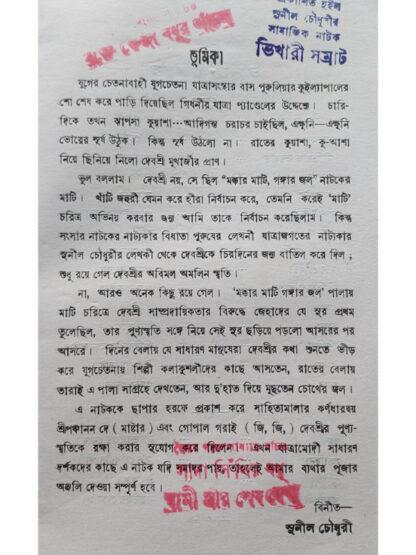 প্রকাশিত হইল
সুনীল চৌধুরীর
সামাজিক নাটক
ভিখারী সম্রাট
ভূমিকা
যুগের চেতনাবাহী যুগচেতনা যাত্রাসংস্থার বাস পুরুলিয়ার কুইল্যাপালের
শো শেষ করে পাড়ি দিয়েছিল গিধনীর যাত্রা প্যাণ্ডেলের উদ্দেশ্যে। চারি-
দিকে তখন ঝাপসা কুয়াশা···আদিগন্ত চরাচর চাইছিল, এক্ষুনি—এক্ষুনি
ভোরের সূর্য উঠুক। কিন্তু সূর্য উঠলো না। রাতের কুয়াশা, কু-আশা
নিয়ে ছিনিয়ে নিলো দেবশ্রী মুখার্জীর প্রাণ।
ভুল বললাম। দেবশ্রী নয়, সে ছিল “মক্কার মাটি, গঙ্গার জল” নাটকের
মাটি। খাঁটি জহুরী যেমন করে হীরা নির্বাচন করে, তেমনি করেই ‘মাটি’
চরিত্র অভিনয় করবার জন্য আমি তাকে নির্বাচন করেছিলাম। কিন্তু
সংসার নাটকের নাট্যকার বিধাতা পুরুষের লেখনী যাত্রাজগতের নাট্যকার
সুনীল চৌধুরীর লেখনী থেকে দেবশ্রীকে চিরদিনের জন্য বাতিল করে দিল;
শুধু রয়ে গেল দেবশ্রীর অবিমল অমলিন স্মৃতি।
না, আরও অনেক কিছু রয়ে গেল। ‘মক্কার মাটি গঙ্গার জল’ পালায়
মাটি চরিত্রে দেবশ্রী সাম্প্রদায়িকতার বিরুদ্ধে জেহাদের যে সুর প্রথম
তুলেছিল, তার পুণ্যস্মৃতি সঙ্গে নিয়ে সেই সুর ছড়িয়ে পড়লো আসরের পর
আসরে। দিনের বেলায় যে সাধারণ মানুষেরা দেবশ্রীর কথা শুনতে ভীড়
করে যুগচেতনায় শিল্পী কলাকুশলীদের কাছে আসতেন, রাতের বেলায়
তারাই এ পালা সাগ্রহে দেখতেন, আর দু’হাত দিয়ে মুছতেন চোখের জল।
এ নাটককে ছাপার হরফে প্রকাশ করে সাহিত্যমালার কর্ণধারদ্বয়
শ্রীপঞ্চানন দে (মাষ্টার) এবং গোপাল গরাই (জি, জি,) দেবশ্রীর পুণ্য-
স্মৃতিকে রক্ষা করার সুযোগ করে দিলেন। এখন যাত্রামোদী সাধারণ
দর্শকদের কাছে এ নাটক যদি সমাদর পায়, তাহলেই আমার ব্যথার পূজার
অঞ্জলি দেওয়া সম্পূর্ণ হবে।
বিনীত—
সুনীল চৌধুরী